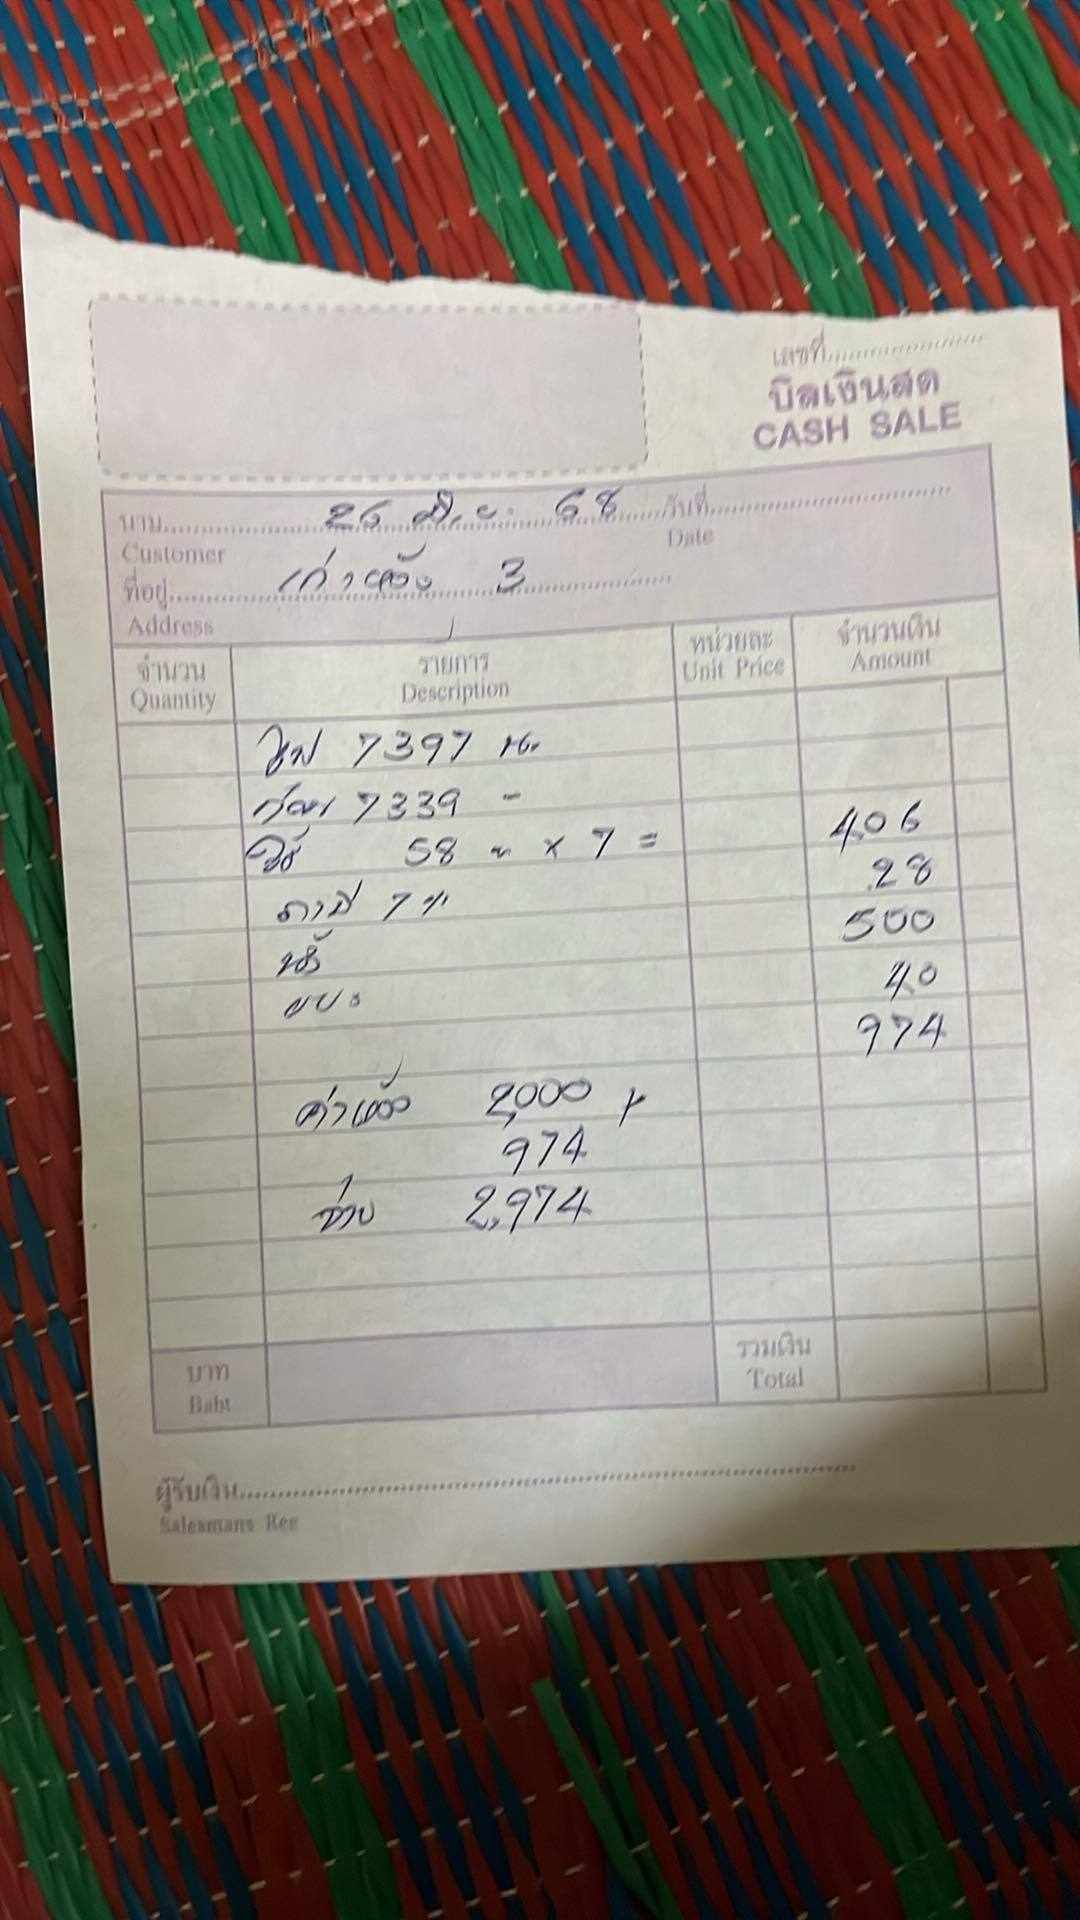 เลขที่
บิลเงินสด
CASH SALE
นาม 26 มิ.ย. 68 วันที่
Customer Date
ที่อยู่ 3
Address
จำนวน รายการ หน่วยละ จำนวนเงิน
Quantity Description Unit Price Amount
ไฟ 7397
ก่อน 7339 -
ใช้ 58 x 7 = 406
ภาษี 7 % 28
น้ำ 500
ขยะ 40
974
ค่าห้อง 2,000
974
จ่าย 2,974
บาท รวมเงิน
Baht Total
ผู้รับเงิน
Salesmans Rec